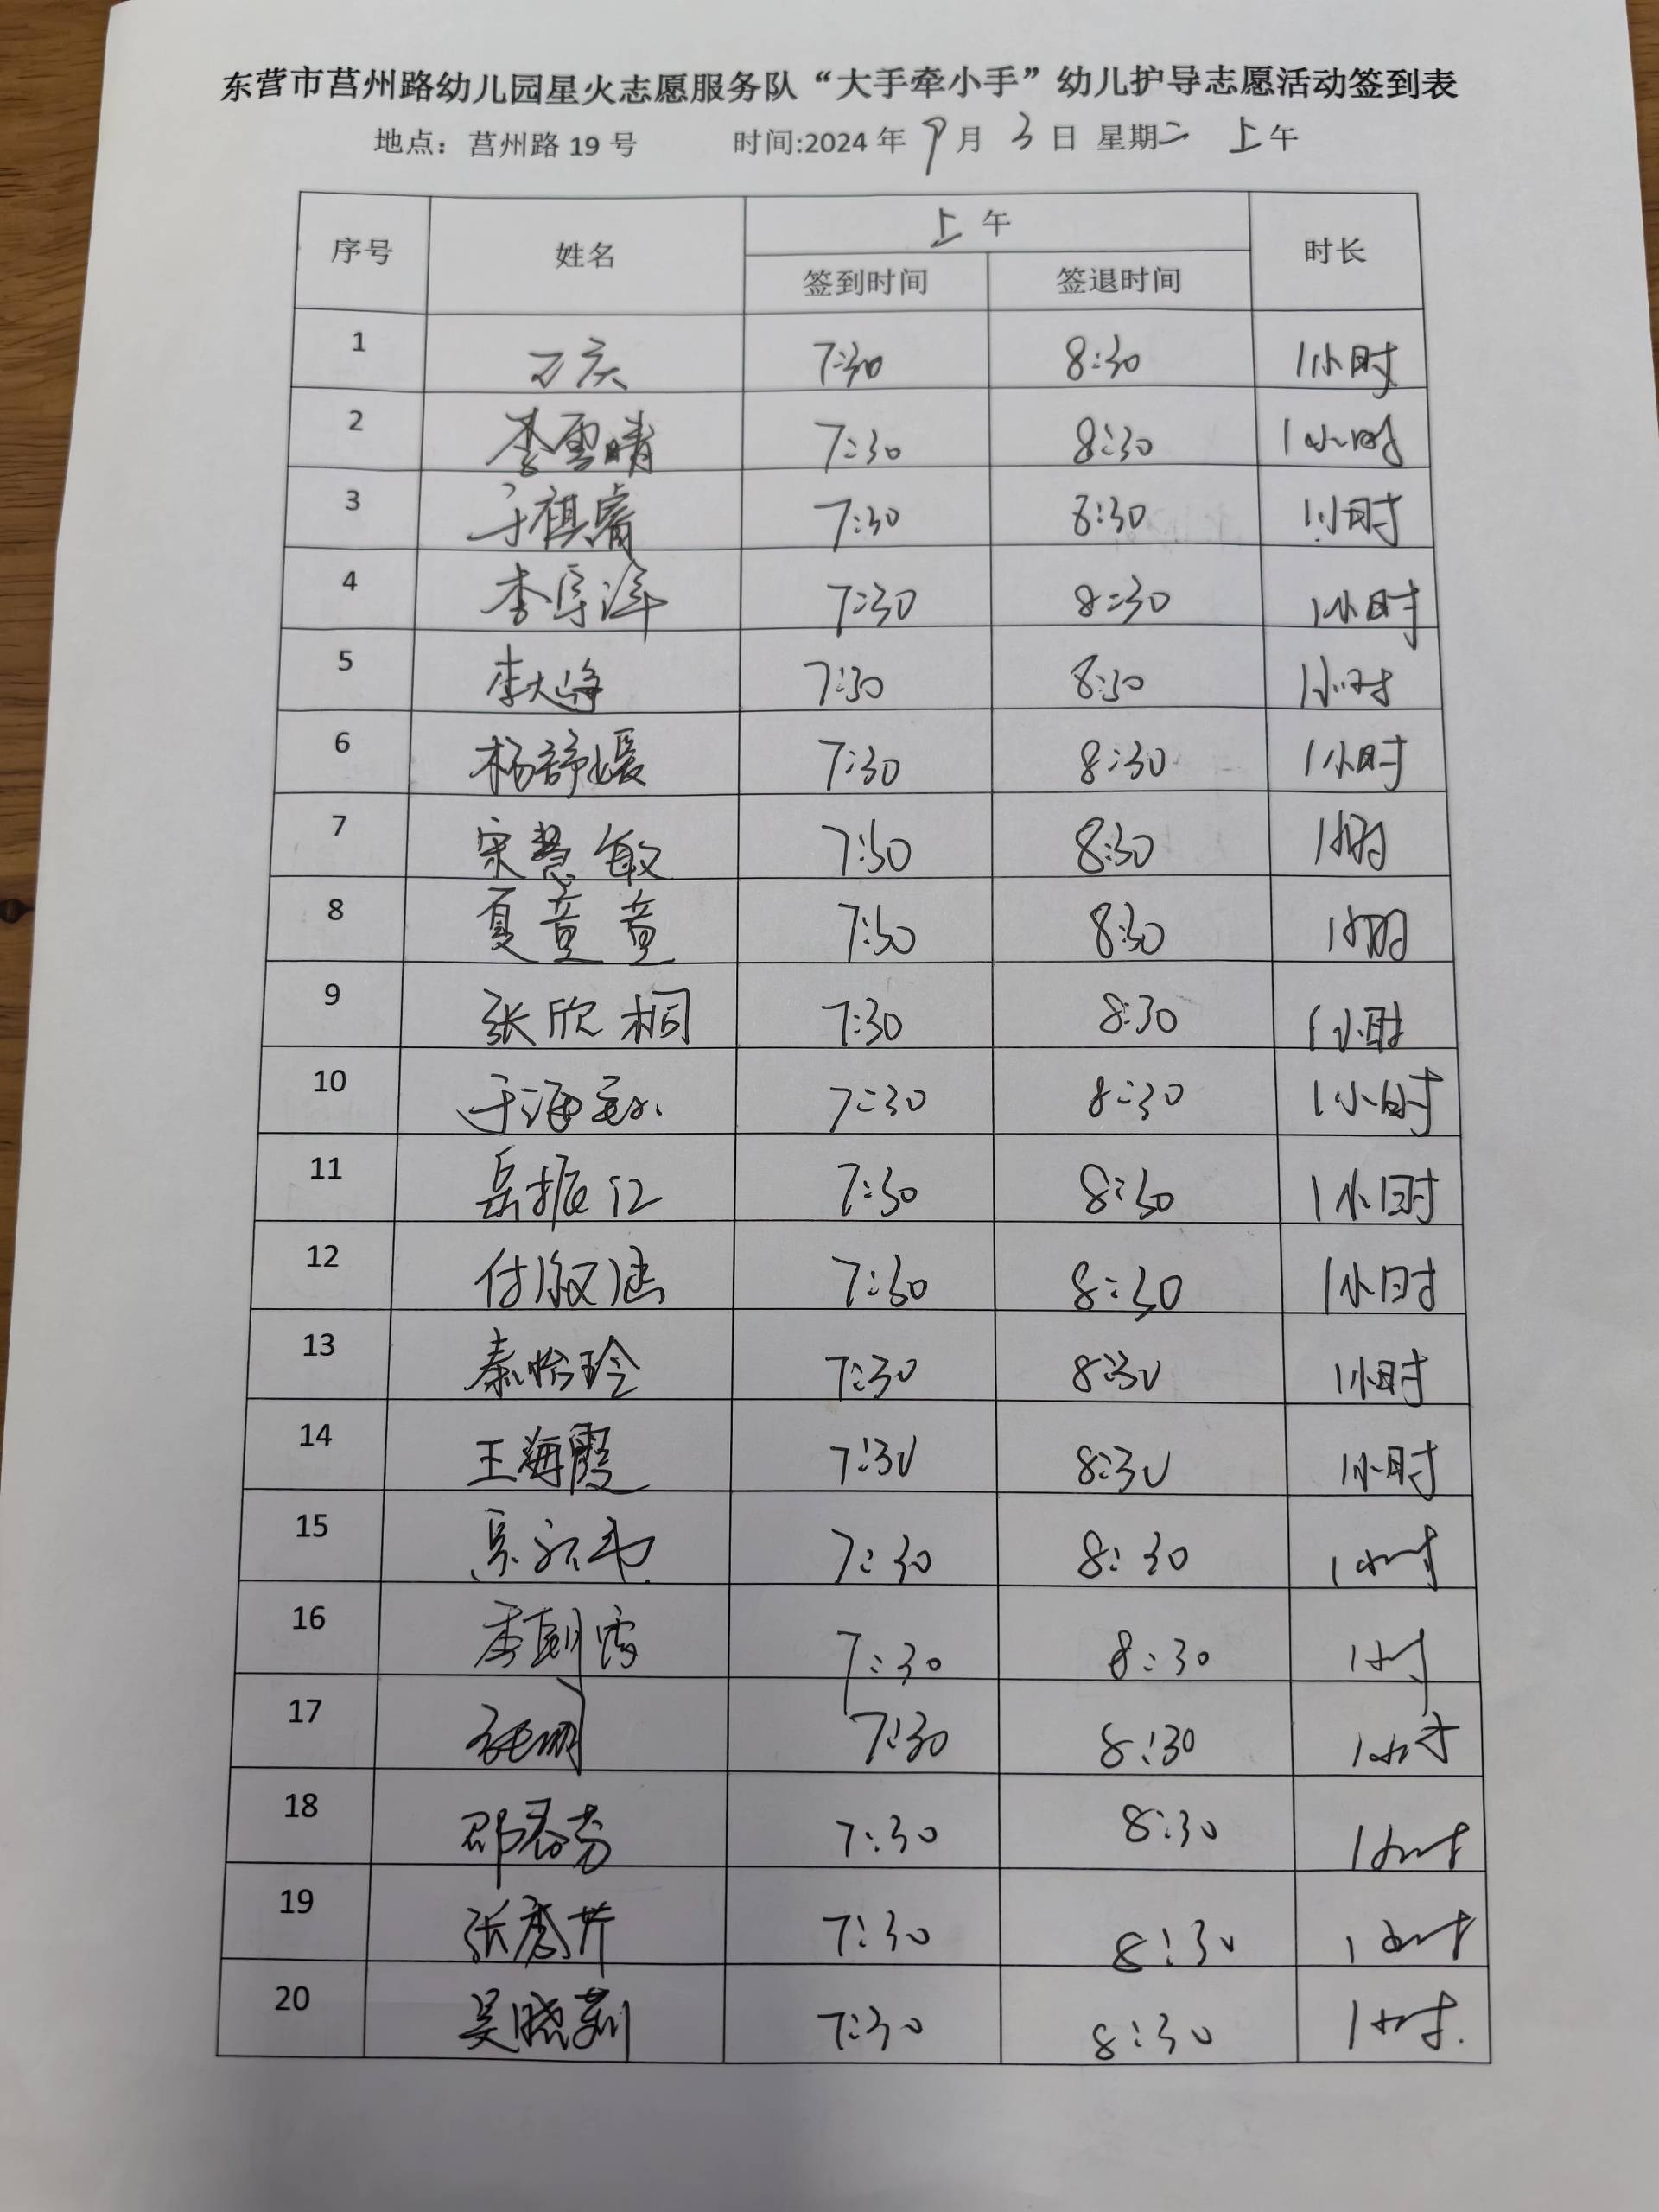 东营市莒州路幼儿园星火志愿服务队“大手牵小手”幼儿护导志愿活动签到表
地点：莒州路 19 号 时间:2024 年 9 月 3 日 星期二 上午
序号 姓名 上午 时长
签到时间 签退时间
1 万庆 7:30 8:30 1小时
2 李雪晴 7:30 8:30 1小时
3 于祺睿 7:30 8:30 1小时
4 李 7:30 8:30 1小时
5 李大海 7:30 8:30 1小时
6 杨舒媛 7:30 8:30 1小时
7 宋慧敏 7:30 8:30 1小时
8 夏童童 7:30 8:30 1小时
9 张欣桐 7:30 8:30 1小时
10 于海 7:30 8:30 1小时
11 岳振江 7:30 8:30 1小时
12 付淑惠 7:30 8:30 1小时
13 秦怡玲 7:30 8:30 1小时
14 王海霞 7:30 8:30 1小时
15 7:30 8:30 1小时
16 李 7:30 8:30 1小时
17 7:30 8:30 1小时
18 邵春芳 7:30 8:30 1小时
19 张秀芹 7:30 8:30 1小时
20 吴晓莉 7:30 8:30 1小时.